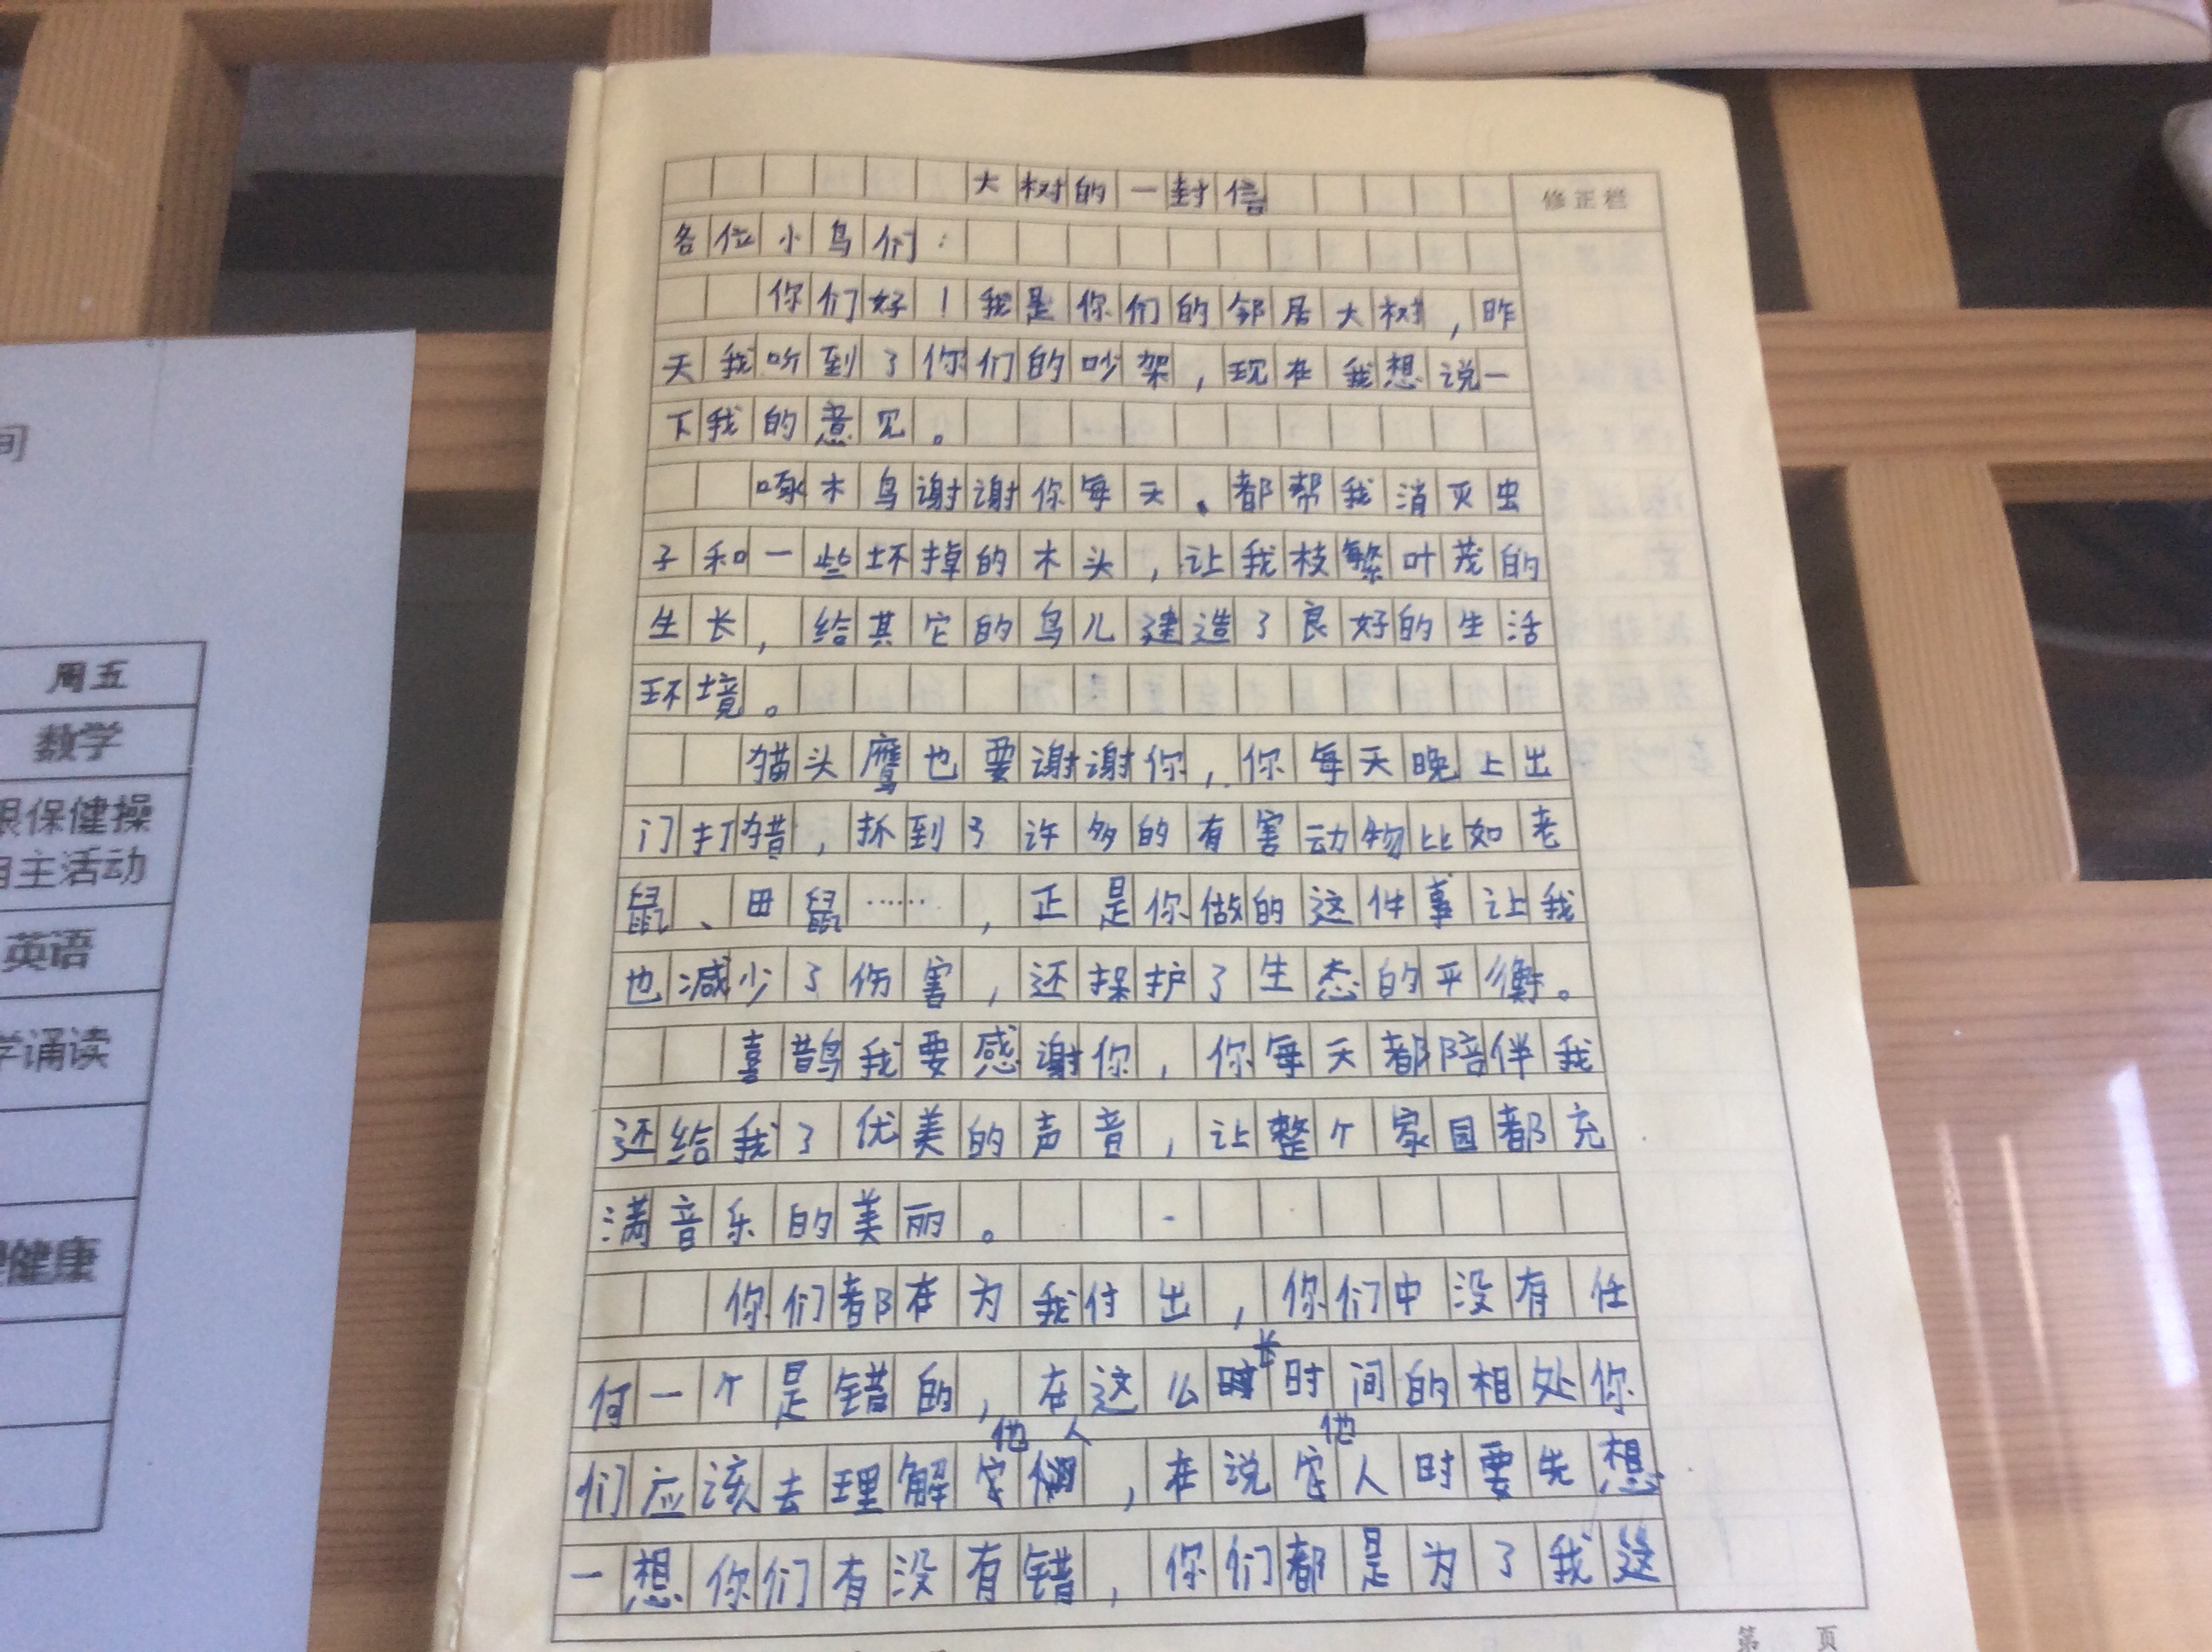 大树的一封信
修正栏
各位小鸟们：
你们好！我是你们的邻居大树，昨
天我听到了你们的吵架，现在我想说一
下我的意见。
啄木鸟谢谢你每天、都帮我消灭虫
子和一些坏掉的木头，让我枝繁叶茂的
生长，给其它的鸟儿建造了良好的生活
环境。
猫头鹰也要谢谢你，你每天晚上出
门打猎，抓到了许多的有害动物比如老
鼠、田鼠……，正是你做的这件事让我
也减少了伤害，还保护了生态的平衡。
喜鹊我要感谢你，你每天都陪伴我
还给我了优美的声音，让整个家园都充
满音乐的美丽。
你们都在为我付出，你们中没有任
何一个是错的，在这么长时间的相处你
们应该去理解他人，在说他人时要先想
一想你们有没有错，你们都是为了我这
第 页
间
周五
数学
眼保健操
自主活动
英语
学诵读
健康